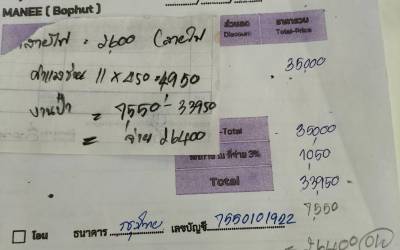 MANEE ( Bophut )
สายไฟ = 2600 (สายไฟ
ส่วนลด ราคารวม
Discount Total-Price
ค่าแรงช่าง 11 x 450 = 4950
35,000
งานป้า = 7550 - 33950
= จ่าย 26400
-Total 35000
ที่จ่าย 3% 1050
Total 33950
7550
โอน ธนาคาร กรุงไทย เลขบัญชี 7550101922
26400